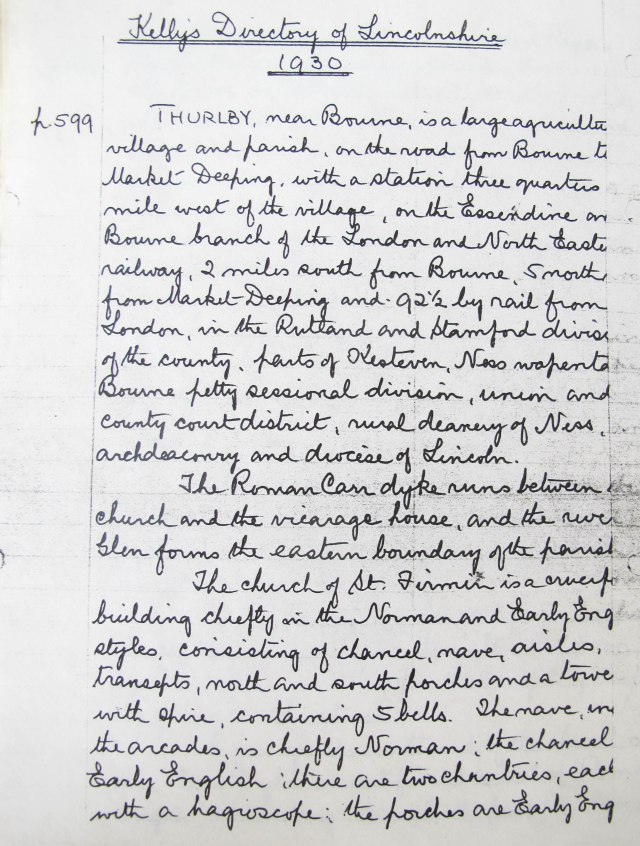 Kelly's Directory of Lincolnshire
1930
p.599 THURLBY, near Bourne, is a large agricultu
village and parish, on the road from Bourne t
Market-Deeping, with a station three quarters
mile west of the village, on the Essendine an
Bourne branch of the London and North Easte
railway, 2 miles south from Bourne, 5 north
from Market-Deeping and 92½ by rail from
London, in the Rutland and Stamford divisi
of the county, parts of Kesteven, Ness wapenta
Bourne petty sessional division, union and
county court district, rural deanery of Ness,
archdeaconry and diocese of Lincoln.
The Roman Carr dyke runs between
church and the vicarage house, and the rive
Glen forms the eastern boundary of the parish
The church of St. Firmin is a crucif
building chiefly in the Norman and Early Eng
styles, consisting of chancel, nave, aisles,
transepts, north and south porches and a towe
with spire, containing 5 bells. The nave, in
the arcades, is chiefly Norman; the chancel
Early English; there are two chantries, each
with a hagioscope; the porches are Early Eng